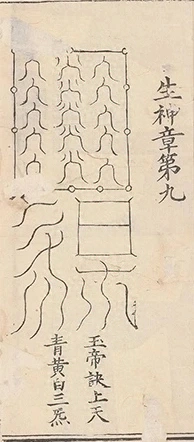 生神章第九
玉帝訣上天
青黃白三炁